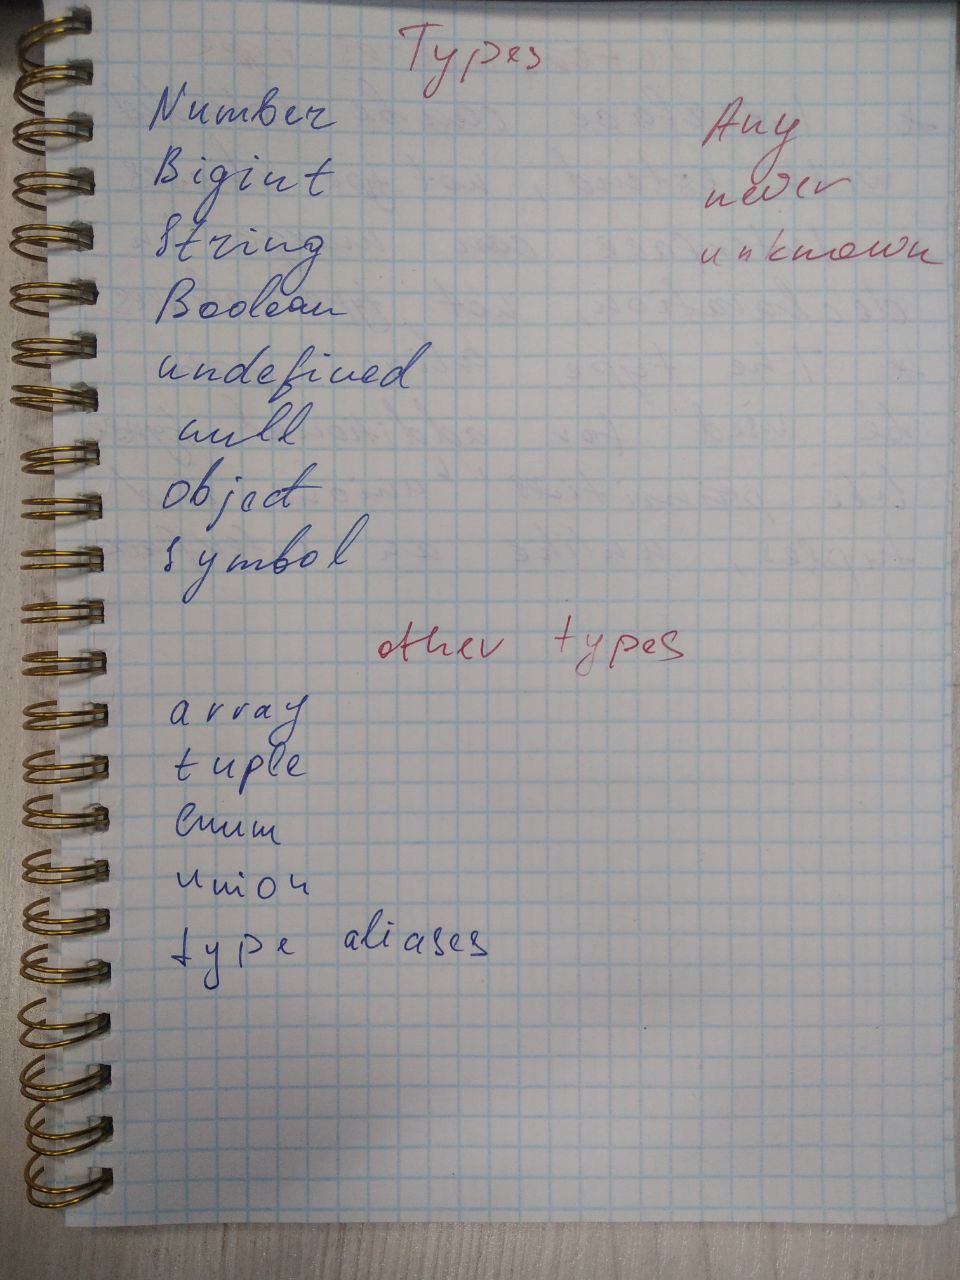 Types
Number
Bigint
String
Boolean
undefined
null
object
symbol
Any
never
unknown
other types
array
tuple
enum
union
type aliases